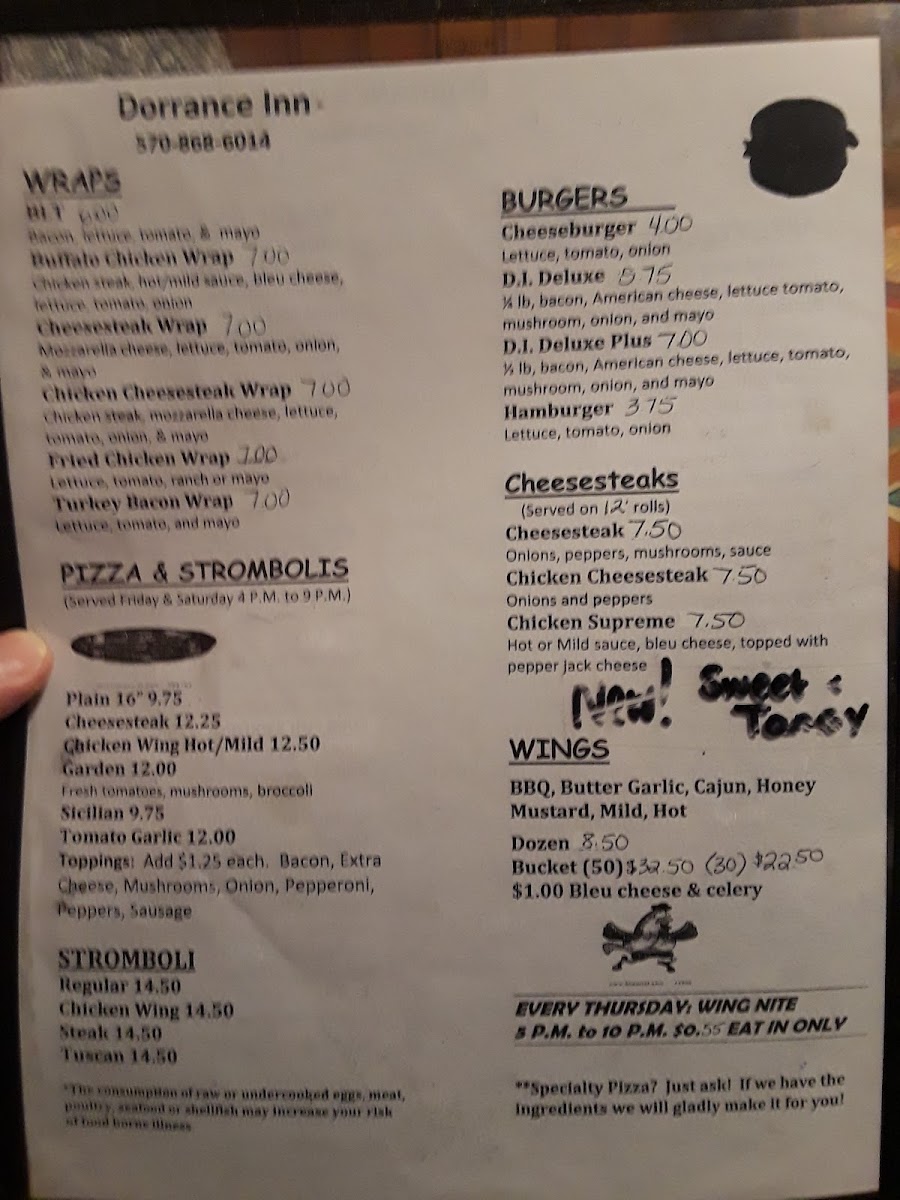 Dorrance Inn
570-868-6014
WRAPS
BLT 6.00
Bacon, lettuce, tomato, & mayo
Buffalo Chicken Wrap 7.00
Chicken steak, hot/mild sauce, bleu cheese,
lettuce, tomato, onion
Cheesesteak Wrap 7.00
Mozzarella cheese, lettuce, tomato, onion,
& mayo
Chicken Cheesesteak Wrap 7.00
Chicken steak, mozzarella cheese, lettuce,
tomato, onion, & mayo
Fried Chicken Wrap 7.00
Lettuce, tomato, ranch or mayo
Turkey Bacon Wrap 7.00
Lettuce, tomato, and mayo
PIZZA & STROMBOLIS
(Served Friday & Saturday 4 P.M. to 9 P.M.)
Plain 16" 9.75
Cheesesteak 12.25
Chicken Wing Hot/Mild 12.50
Garden 12.00
Fresh tomatoes, mushrooms, broccoli
Sicilian 9.75
Tomato Garlic 12.00
Toppings: Add $1.25 each. Bacon, Extra
Cheese, Mushrooms, Onion, Pepperoni,
Peppers, Sausage
STROMBOLI
Regular 14.50
Chicken Wing 14.50
Steak 14.50
Tuscan 14.50
*The consumption of raw or undercooked eggs, meat,
poultry, seafood or shellfish may increase your risk
of food borne illness
BURGERS
Cheeseburger 4.00
Lettuce, tomato, onion
D.I. Deluxe 5.75
¼ lb, bacon, American cheese, lettuce tomato,
mushroom, onion, and mayo
D.I. Deluxe Plus 7.00
½ lb, bacon, American cheese, lettuce, tomato,
mushroom, onion, and mayo
Hamburger 3.75
Lettuce, tomato, onion
Cheesesteaks
(Served on 12" rolls)
Cheesesteak 7.50
Onions, peppers, mushrooms, sauce
Chicken Cheesesteak 7.50
Onions and peppers
Chicken Supreme 7.50
Hot or Mild sauce, bleu cheese, topped with
pepper jack cheese
New! Sweet &
Tangy
WINGS
BBQ, Butter Garlic, Cajun, Honey
Mustard, Mild, Hot
Dozen 8.50
Bucket (50) $32.50 (30) $22.50
$1.00 Bleu cheese & celery
EVERY THURSDAY: WING NITE
5 P.M. to 10 P.M. $0.55 EAT IN ONLY
**Specialty Pizza? Just ask! If we have the
ingredients we will gladly make it for you!